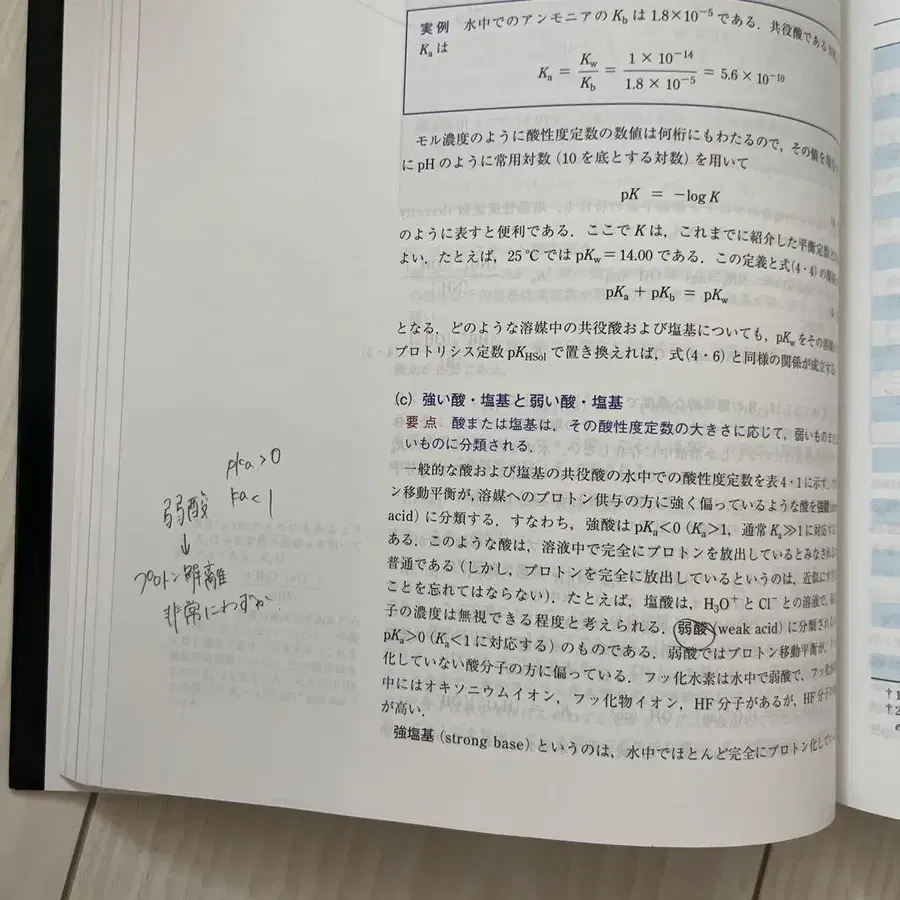 実例 水中でのアンモニアのKbは1.8×10⁻⁵である.共役酸である
Kaは
Ka = Kw/Kb = 1 × 10⁻¹⁴/1.8 × 10⁻⁵ = 5.6 × 10⁻¹⁰
モル濃度のように酸性度定数の数値は何桁にもわたるので,その値を
にpHのように常用対数(10を底とする対数)を用いて
pK = −log K
のように表すと便利である.ここでKは,これまでに紹介した平衡定数
よい.たとえば,25℃ではpKw=14.00である.この定義と式(4・4)の
pKa + pKb = pKw
となる.どのような溶媒中の共役酸および塩基についても,pKwをその溶媒
プロトリシス定数pKHSolで置き換えれば,式(4・6)と同様の関係が成立する
(c) 強い酸・塩基と弱い酸・塩基
要点 酸または塩基は,その酸性度定数の大きさに応じて,弱いもの
いものに分類される.
一般的な酸および塩基の共役酸の水中での酸性度定数を表4・1に示す.
ン移動平衡が,溶媒へのプロトン供与の方に強く偏っているような酸を強酸
acid)に分類する.すなわち,強酸はpKa<0(Ka>1,通常Ka≫1に対応する
ある.このような酸は,溶液中で完全にプロトンを放出しているとみなされる
普通である(しかし,プロトンを完全に放出しているというのは,近似にす
ことを忘れてはならない).たとえば,塩酸は,H₃O⁺とCl⁻との溶液で,
子の濃度は無視できる程度と考えられる.弱酸(weak acid)に分類される
pKa>0(Ka<1に対応する)のものである.弱酸ではプロトン移動平衡が,
化していない酸分子の方に偏っている.フッ化水素は水中で弱酸で,フッ
中にはオキソニウムイオン,フッ化物イオン,HF分子があるが,HF分子
が高い.
強塩基(strong base)というのは,水中でほとんど完全にプロトン化して
pka>0
弱酸 ka<1
↓
プロトン解離
非常にわずか.
†1
†2